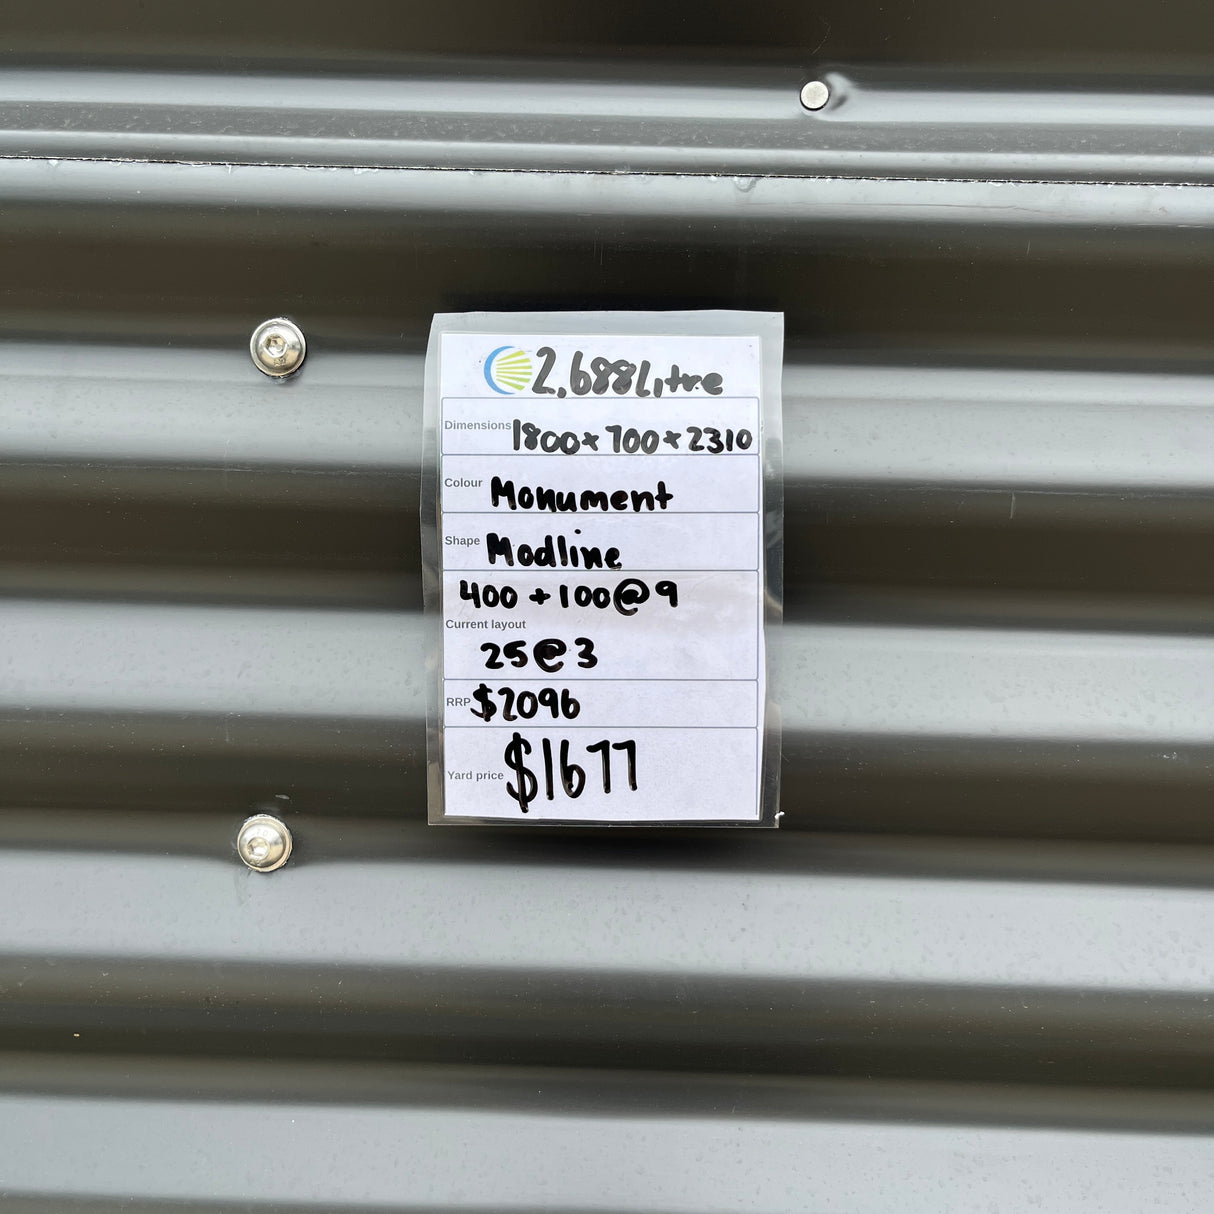 2,688Litre
Dimensions 1800x700x2310
Colour Monument
Shape Modline
400 + 100@9
Current layout
25@3
RRP $2096
Yard price $1677